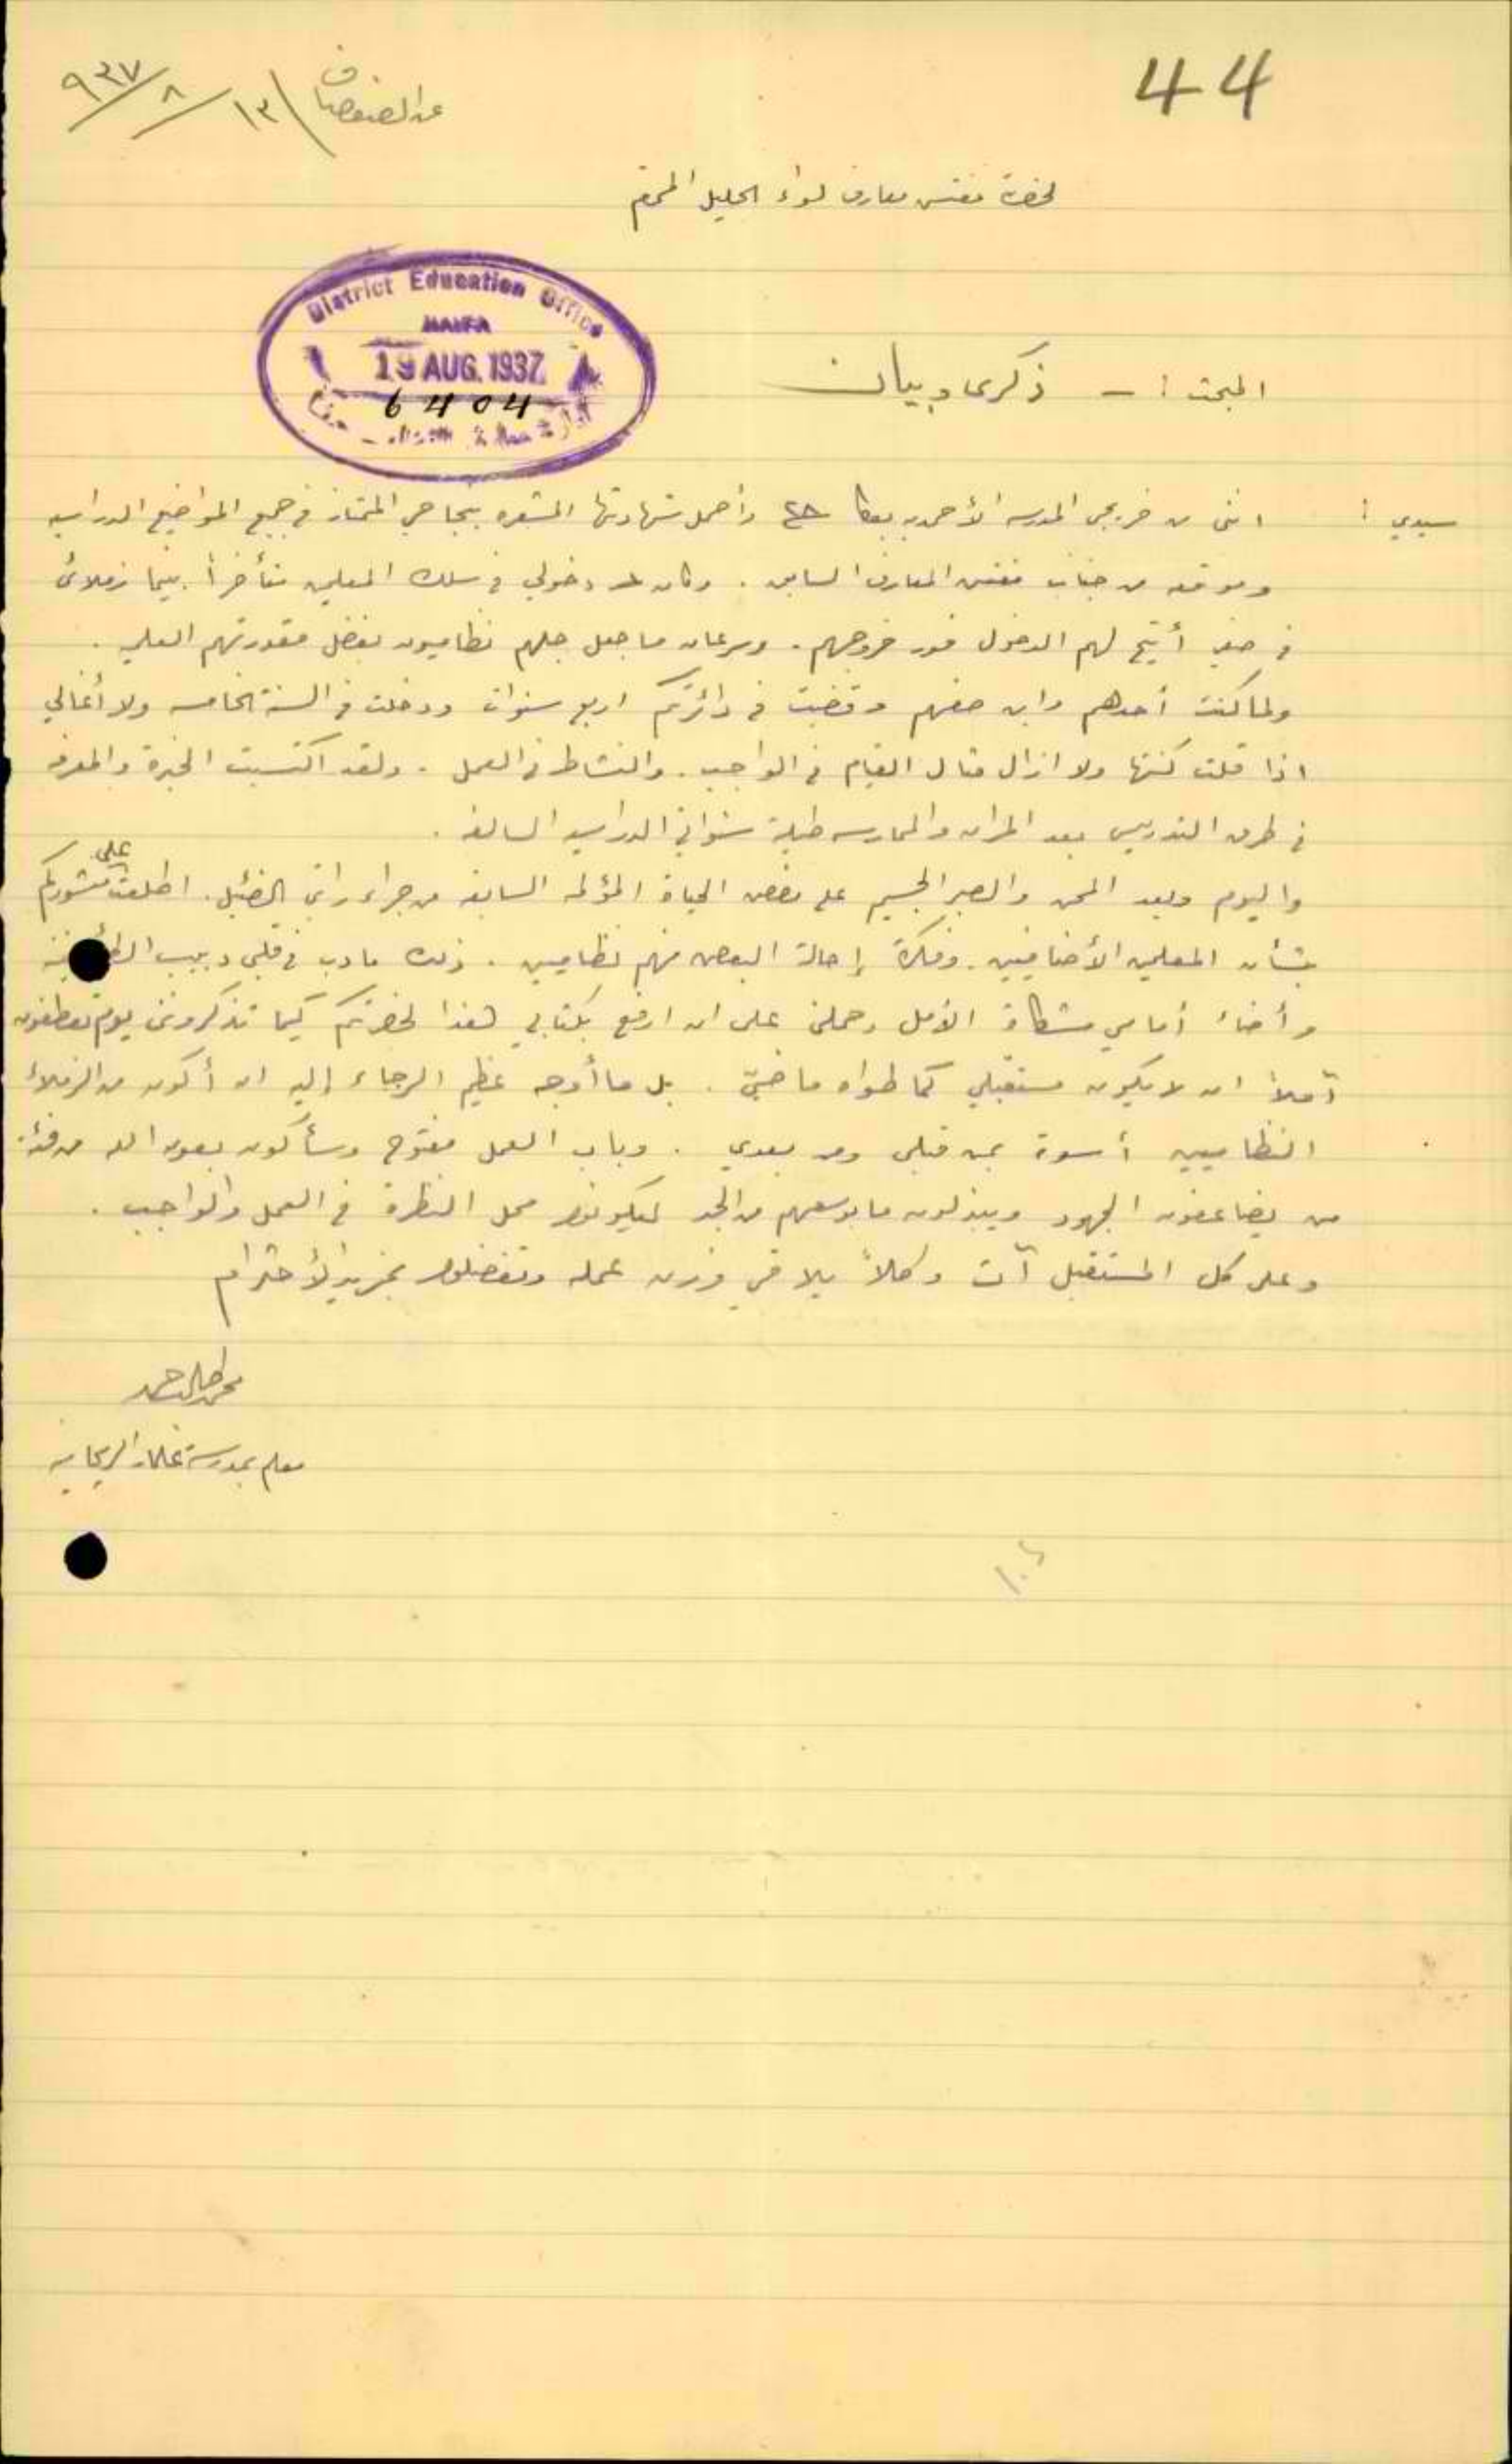 44
عن الصفصاف ١٣/٨/٩٣٧
لحضرة مفتش معارف لواء الجليل المحترم
District Education Office
HAIFA
19 AUG. 1937
6404
المبحث :- ذكرى وبيان
سيدي : انني من خريجي المدرسه الأحمديه بعكا وأحمل شهادتها المشعره بنجاحي الممتاز في جميع المواضيع الدراسيه
وموقعه من جناب مفتش المعارف السابق . وكان دخولي في سلك المعلمين متأخراً بينما زملائي
في صفي أتيح لهم الدخول فور خروجهم . وسرعان ما جعل جلهم نظاميون بفضل مقدرتهم العلميه .
ولما كنت أحدهم وابن صفهم وقضيت في دائرتكم اربع سنوات ودخلت في السنة الخامسه ولا أغالي
اذا قلت كنتها ولا ازال مثال القيام في الواجب . والنشاط في العمل . ولقد اكتسبت الخبرة والمعرفه
في طرق التدريس بعد المران والممارسه طيلة سنواتي الدراسيه السالفه .
واليوم وبعد المحن والصبر الجسيم على مضض الحياة المؤلمه السابقه من جراء راتبي الضئيل . اطلعت على منشوركم
بشأن المعلمين الأضافيين . وفكرة إحالة البعض منهم نظاميين . ذلك ما دب في قلبي دبيب
وأضاء أمامي مشكاة الأمل وحملني على ان ارفع بكتابي هذا لحضرتكم كيما تذكرونني يوم تعطفون
آملاً ان لا يكون مستقبلي كما طواه ماضيّ . بل ما أوجه عظيم الرجاء إليه ان أكون من الزملاء
النظاميين أسوة بمن قبلي ومن بعدي . وباب العمل مفتوح وسأكون بعون الله من فئة
من يضاعفون الجهود ويبذلون ما بوسعهم من الجد ليكونوا محل النظرة في العمل والواجب .
وعلى كل المستقبل آت وكلاً يلاقي وزن عمله وتفضلوا بمزيد الأحترام
معلم بمدرسة الريحانيه